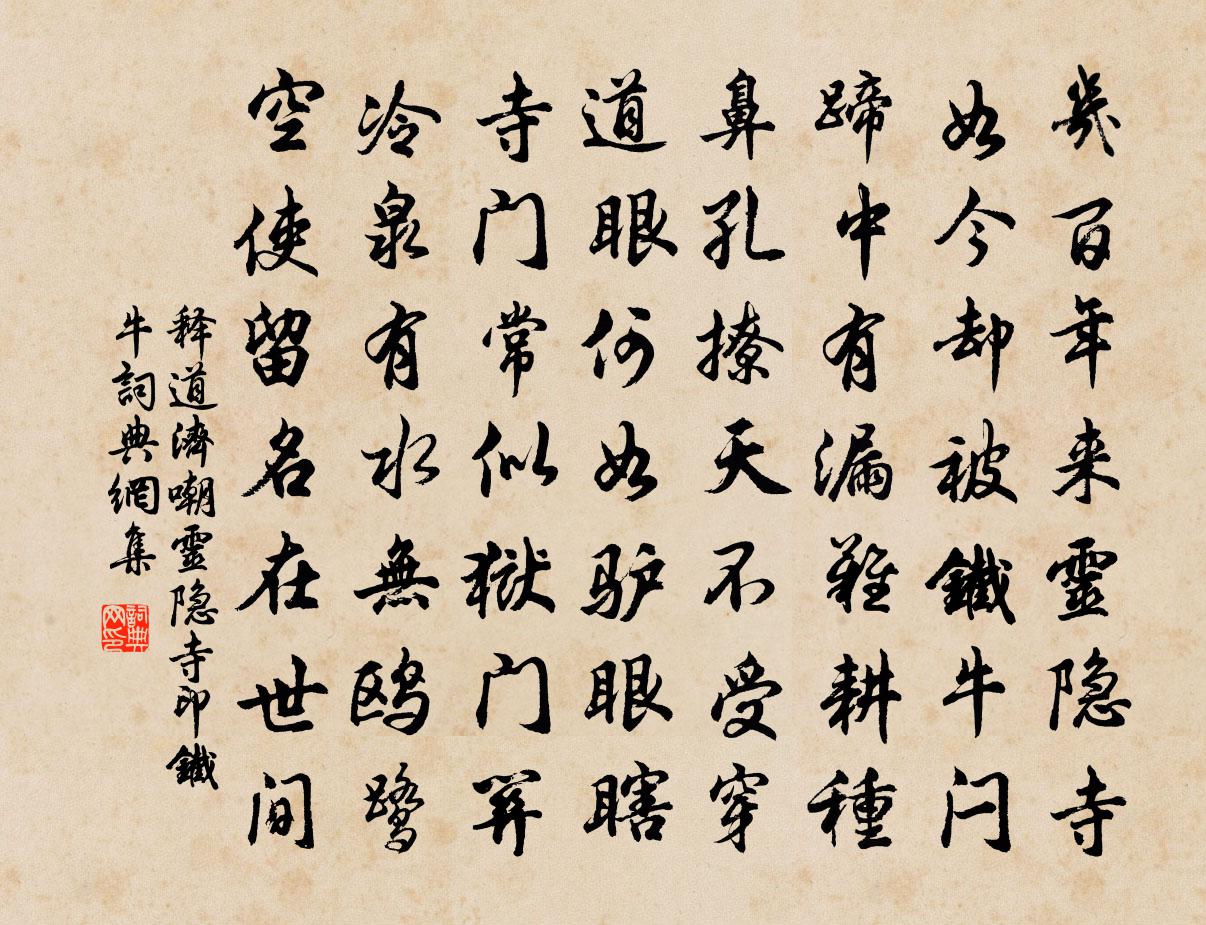 幾百年来靈隐寺
如今却被鐵牛闩
蹄中有漏難耕種
鼻孔撩天不受穿
道眼何如驴眼瞎
寺门常似獄门関
冷泉有水無鸥鹭
空使留名在世间
释道濟嘲靈隐寺印鐵
牛詞典網集
詞典
网印